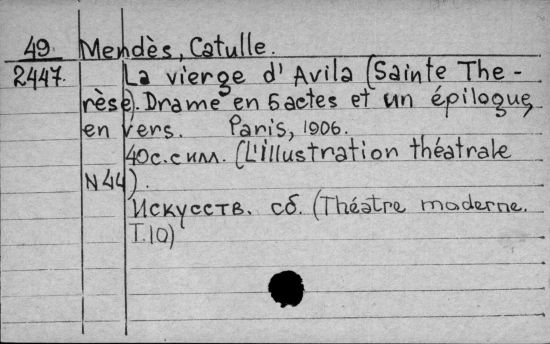 49. Mendès, Catulle.
2447. La vierge d' Avila (Sainte The-
rèse). Drame en 5 actes et un épilogue,
en vers. Paris, 1906.
40 с. с илл. (L'illustration théatrale
N 44).
Искусств. сб. (Théatre moderne.
T.10)